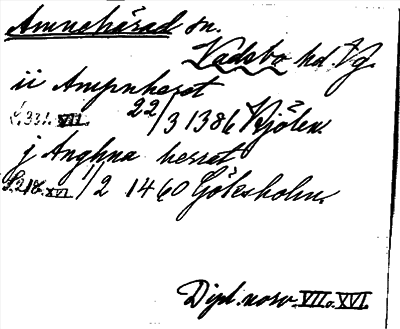 Amnehärad sn.
Vadsbo hd. Vg.
ii Ampnheret
S. 331. VII. 22/3 1386 Kjölen.
j Anghna herret
S. 218. XVI 1/2 1460 Gölesholm.
Dipl. norv. VII o. XVI.